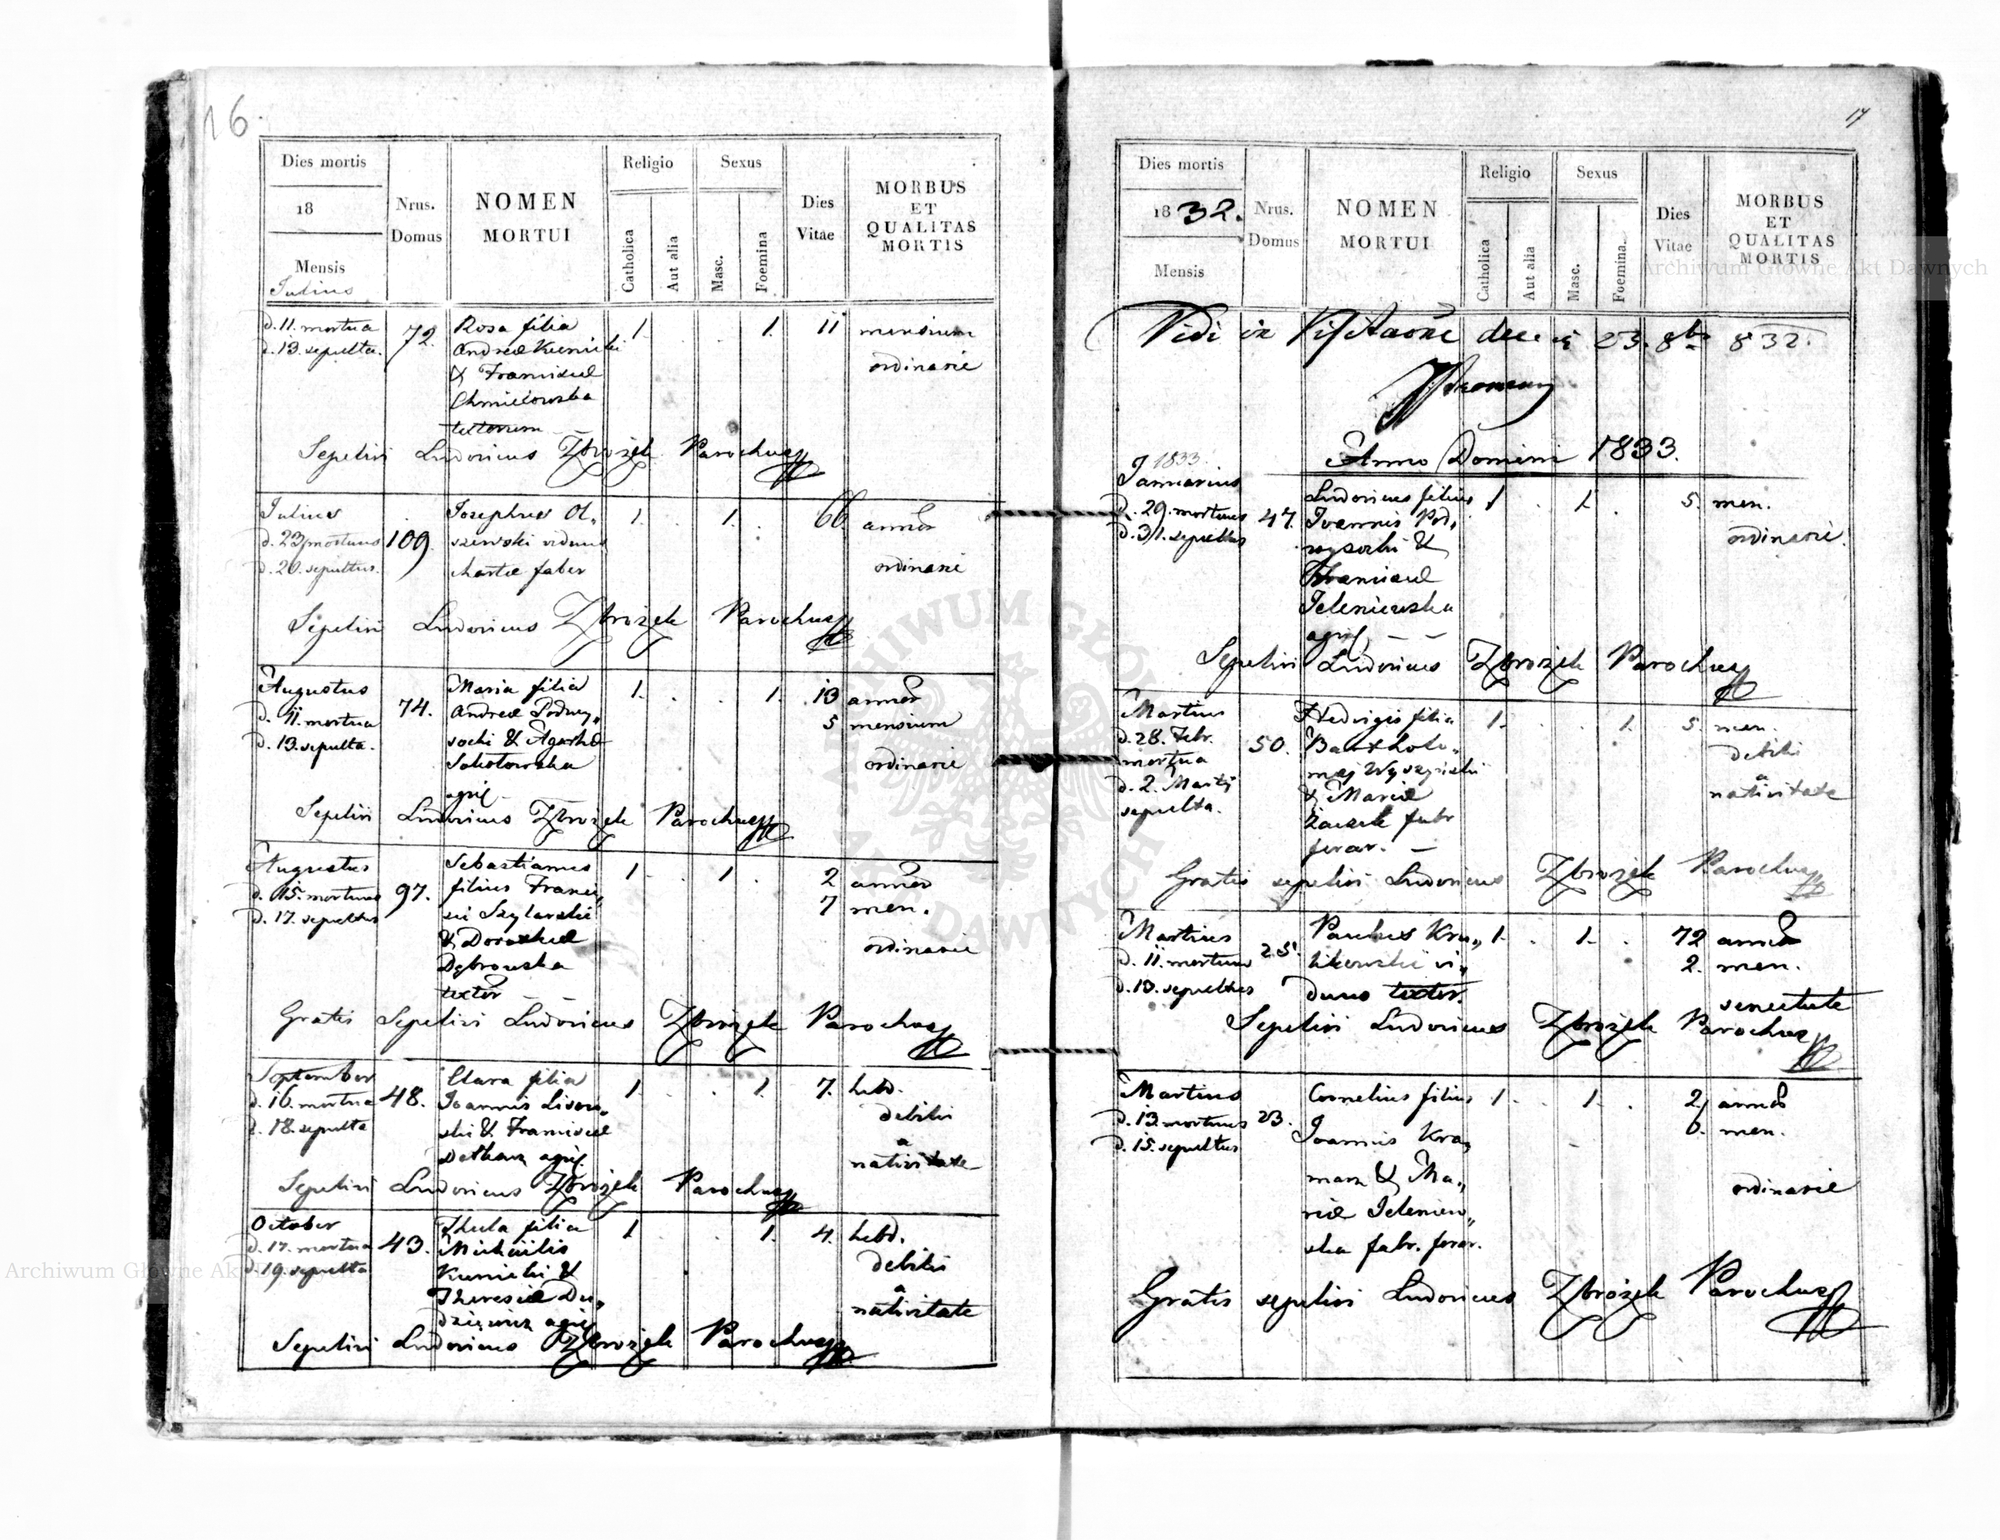 16.
Dies mortis
18
Mensis
Julius
Nrus.
Domus
NOMEN
MORTUI
Religio
Catholica
Aut alia
Sexus
Masc.
Foemina
Dies
Vitae
MORBUS
ET
QUALITAS
MORTIS
d. 11. mortua
d. 13. sepulta.
72.
Rosa filia
Andreæ
& Franciscæ
Chmielowska
textorum
1. 1. 11 mensium
ordinarie
Sepelivi Ludovicus Zbrożek Parochus
Julius
d. 23 mortuus
sepultus.
109.
Josephus Ol„
szewski viduus
faber
1. 1. 66. annor
ordinarie
Sepelivi Ludovicus Zbrożek Parochus
Augustus
d. 11. mortua
d. 13. sepulta.
74.
Maria filia
Andreæ Podwy„
socki & Agatha
Sokołowska
agric.
1. 1. 13 annor
5 mensium
ordinarie
Sepelivi Ludovicus Zbrożek Parochus
Augustus
d. 15. mortuus
d. 17. sepultus
97.
Sebastianus
filius Franci„
sci Szylarski
& Dorotheæ
Dąbrowska
textor
1. 1. 2 annor
7 men.
ordinarie
Gratis Sepelivi Ludovicus Zbrożek Parochus
September
d. 16. mortua
d. 18. sepulta
48.
Clara filia
Joannis Lisow„
ski & Franciscæ
agric.
1. 1. 7. hebd.
debilis
a
nativitate
Sepelivi Ludovicus Zbrożek Parochus
October
d. 17. mortua
d. 19. sepulta
43.
Thecla filia
Michaelis
Kunicki &
Theresiæ Du„
agric.
1. 1. 4. hebd.
debilis
a
nativitate
Sepelivi Ludovicus Zbrożek Parochus
17
Dies mortis
1832.
Mensis
Nrus.
Domus
NOMEN
MORTUI
Religio
Catholica
Aut alia
Sexus
Masc.
Foemina.
Dies
Vitae
MORBUS
ET
QUALITAS
MORTIS
Vidi in 23. 8br 832.
Anno Domini 1833.
1833.
Januarius
d. 29. mortuus
d. 31. sepultus
47.
Ludovicus filius
Joannis Pod„
wysocki &
Franciscæ
Jeleniewska
agric.
1. 1. 5. men.
ordinarie.
Sepelivi Ludovicus Zbrożek Parochus
Martius
d. 28. Febr.
mortua
d. 2. Martij
sepulta.
50.
Hedvigis filia
Bartholo„
mæj Wyszyński
& Mariæ
fabr
ferar.
1. 1. 5. men.
debilis
a
nativitate
Gratis sepelivi Ludovicus Zbrożek Parochus
Martius
d. 11. mortuus
d. 13. sepultus
25.
Paulus Kru„
likowski vi„
duus textor.
1. 1. 72 annor
2. men.
senectute
Sepelivi Ludovicus Zbrożek Parochus
Martius
d. 13. mortuus
d. 15. sepultus
23.
Cornelius filius
Joannis Kra„
marz & Ma„
riæ Jeleniew„
ska fabr. ferar.
1. 1. 2 annor
6. men.
ordinarie
Gratis sepelivi Ludovicus Zbrożek Parochus
ARCHIWUM GŁÓWNE AKT DAWNYCH
Archiwum Główne Akt Dawnych